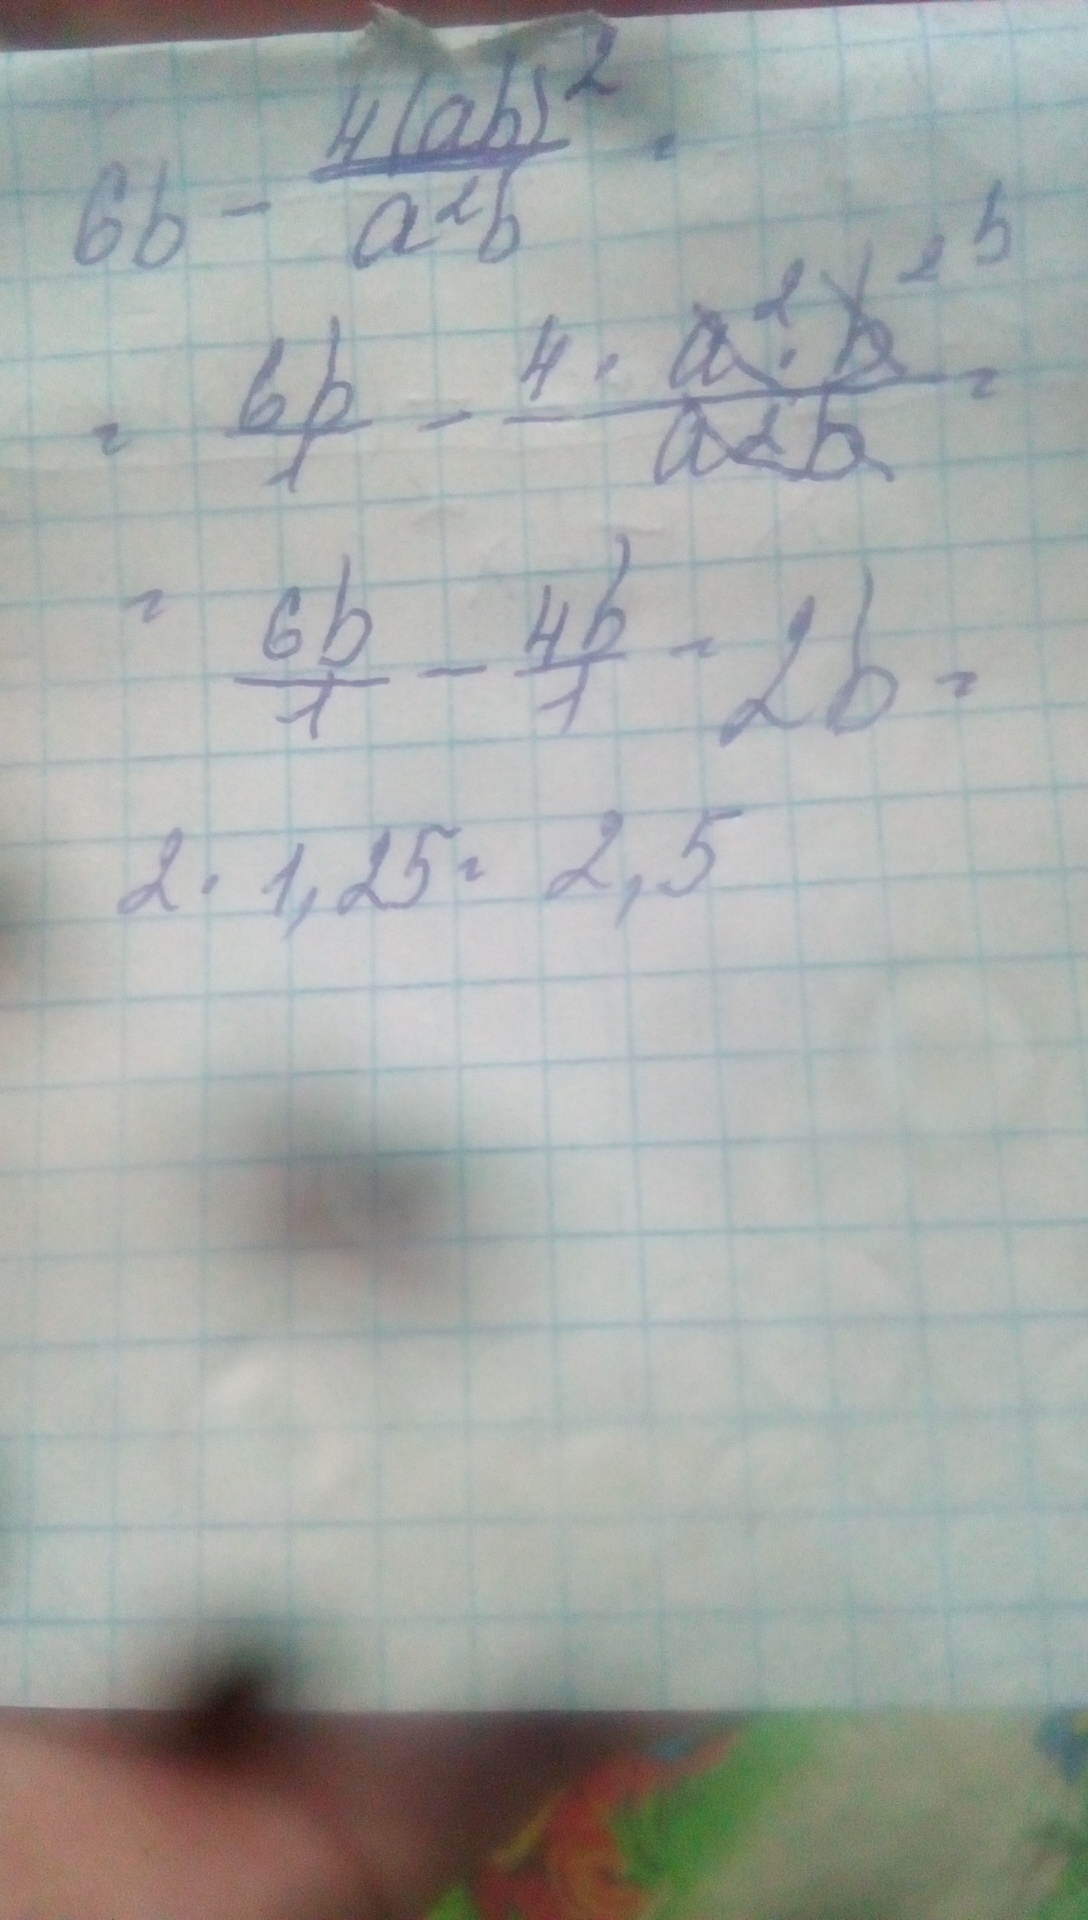 6b - 4(ab)² / a²b =
= 6b/1 - 4 · a² · b² b / a²b =
= 6b/1 - 4b/1 = 2b =
2 · 1,25 = 2,5